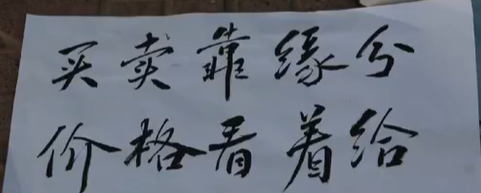 买卖靠缘分
价格看着给